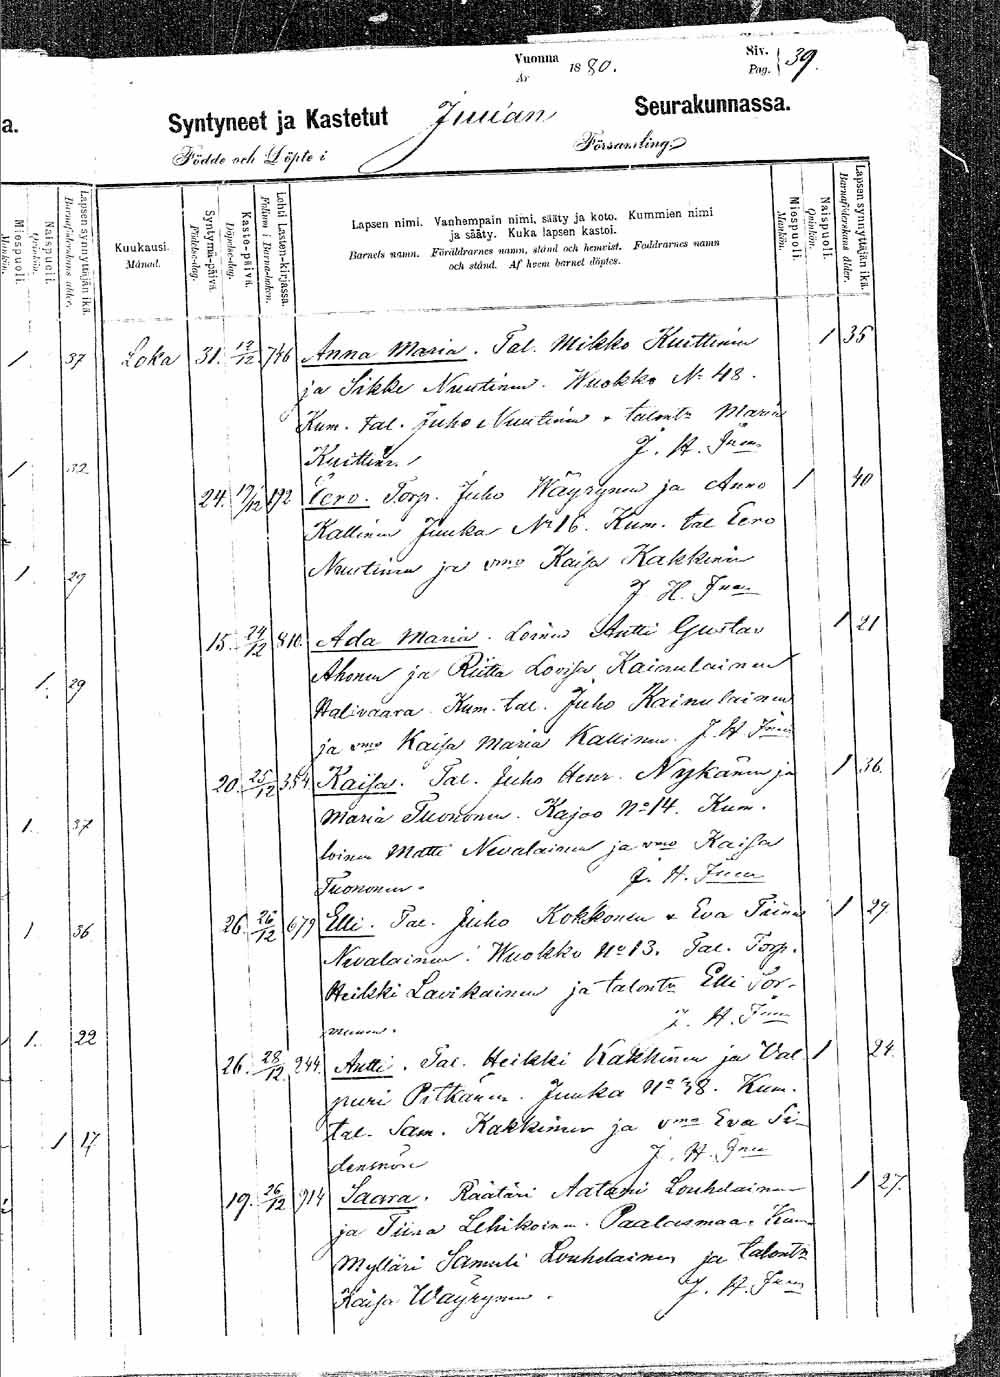 Vuonna 1880. Siv. 39.
År Pag.
a. Syntyneet ja Kastetut Juuan Seurakunnassa.
Födde och Döpte i Församling
Miespuoli. Mankön.
Naispuoli. Qvinkön.
Lapsen synnyttäjän ikä. Barnaföderskans ålder.
Kuukausi. Månad.
Syntymä-päivä. Födelse-dag.
Kaste-päivä. Döpelse-dag.
Lehti Lasten-kirjassa. Folium i Barna-boken.
Lapsen nimi. Vanhempain nimi, sääty ja koto. Kummien nimi
ja sääty. Kuka lapsen kastoi.
Barnets namn. Föräldrarnes namn, stånd och hemvist. Faddrarnes namn
och stånd. Af hvem barnet döptes.
Miespuoli. Mankön.
Naispuoli. Qvinkön.
Lapsen synnyttäjän ikä. Barnaföderskans ålder.
1 37 Loka 31. 12/12 746 Anna Maria. Tal. Mikko Kuittinen 1 35
ja Sikke Nuutinen. Wuokko No 48.
Kum. tal. Juho Nuutinen & talontr Maria
Kuittinen J. H.
1 32
24. 17/12 192 Eero. Torp. Juho Wäyrynen ja Anna 1 40
Kallinen Juuka No 16. Kum. tal Eero
Nuutinen ja vmo Kaisa Kakkinen
1 29
J H.
15. 24/12 810. Ada Maria. Loinen Antti Gustav 1 21
Ahonen ja Riitta Lovisa Kainulainen
1. 29
Halivaara. Kum. tal. Juho Kainulainen
ja vmo Kaisa Maria Kallinen. J. H.
20. 25/12 354. Kaisa. Tal. Juho Henr. Nykänen ja 1 36.
1. 37
Maria Tuononen. Kajoo No 14. Kum.
loinen Matti Nevalainen ja vmo Kaisa
Tuononen. J. H.
1 36 26. 26/12 679 Elli. Tal. Juho Kokkonen & Eva Tiina 1 29.
Nevalainen. Wuokko No 13. Tal. Torp.
Heikki Lavikainen ja talontr Elli Tor-
J. H.
1. 22
26. 28/12. 244. Antti. Tal. Heikki Kakkinen ja Val 1 24.
puri Pitkänen. Juuka No 38. Kum.
tal. Sam. Kakkinen ja vmo Eva Ti-
1 17
densuon J. H.
19. 26/12 914 Saara. Räätäri Aatami Louhelainen 1 27.
ja Tiina Lehikoinen. Paalasmaa. Kum
Mylläri Samuli Louhelainen ja talontr
Kaisa Wäyrynen. J. H.